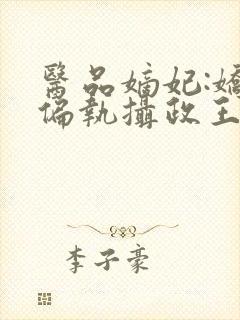 醫品嫡妃:嬌
偏執攝政王
李子豪